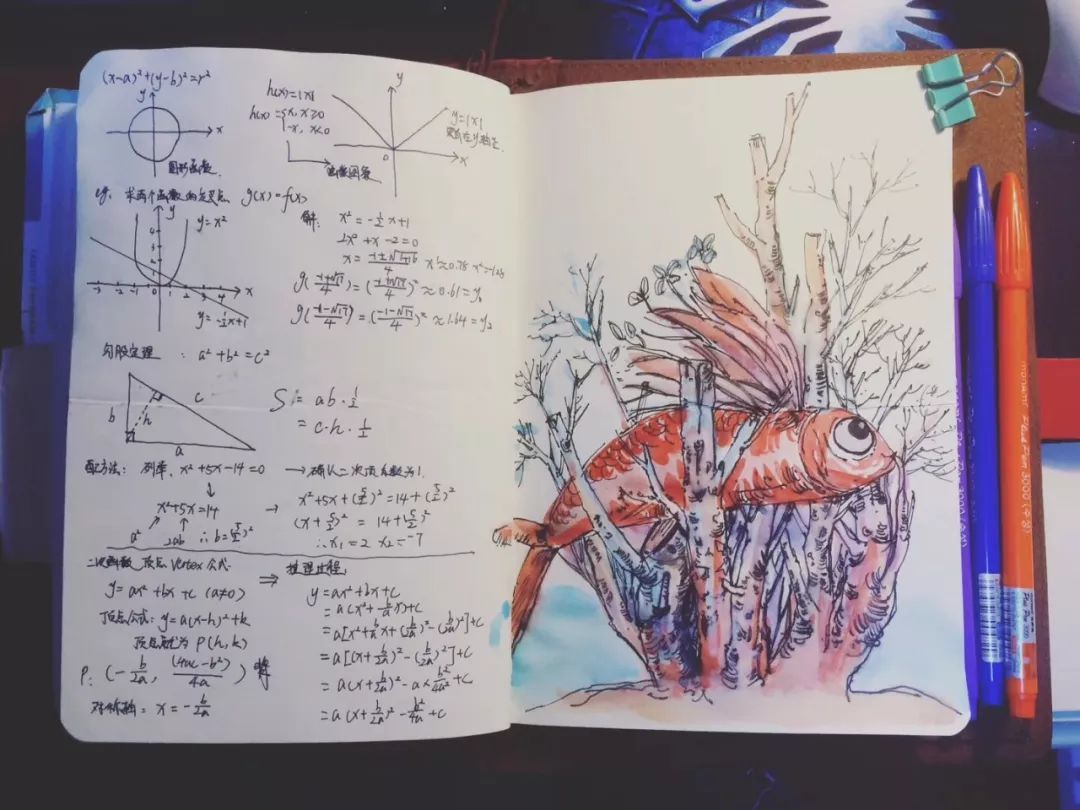 (x-a)²+(y-b)²=r²
y
x
圆形函数
h(x)=|x|
h(x)={x, x≥0
-x, x<0
函数图象
y
y=|x|
x
eg. 求两个函数的交点 g(x)=f(x)
y
y=x²
-3 -2 -1 0 1 2 3 4 x
y=-½x+1
解: x²=-½x+1
2x²+x-2=0
x¹≈0.78
g((-1+√17)/4)=((-1+√17)/4)²≈0.61=y₁
g((-1-√17)/4)=((-1-√17)/4)²≈1.64=y₂
勾股定理: a²+b²=c²
b
h
c
a
S=ab·½
=c·h·½
配方法: 列举, x²+5x-14=0 → 确认二次项系数为1.
↓
x²+5x=14 → x²+5x+(5/2)²=14+(5/2)²
(x+5/2)²=14+(5/2)²
a² 2ab ∴b=(5/2)²
∴x₁=2 x₂=-7
二次函数 顶点 Vertex 公式.
y=ax²+bx+c (a≠0)
顶点公式: y=a(x-h)²+k
顶点就为 P(h,k)
P: (-b/2a, (4ac-b²)/4a)
对称轴: x=-b/2a
⇒ 推理过程:
y=ax²+bx+c
=a(x²+b/a x)+c
=a[x²+b/a x+(b/2a)²-(b/2a)²]+c
=a[(x+b/2a)²-(b/2a)²]+c
=a(x+b/2a)²-a×b²/4a²+c
=a(x+b/2a)²-b²/4a+c
monami Plus Pen 3000